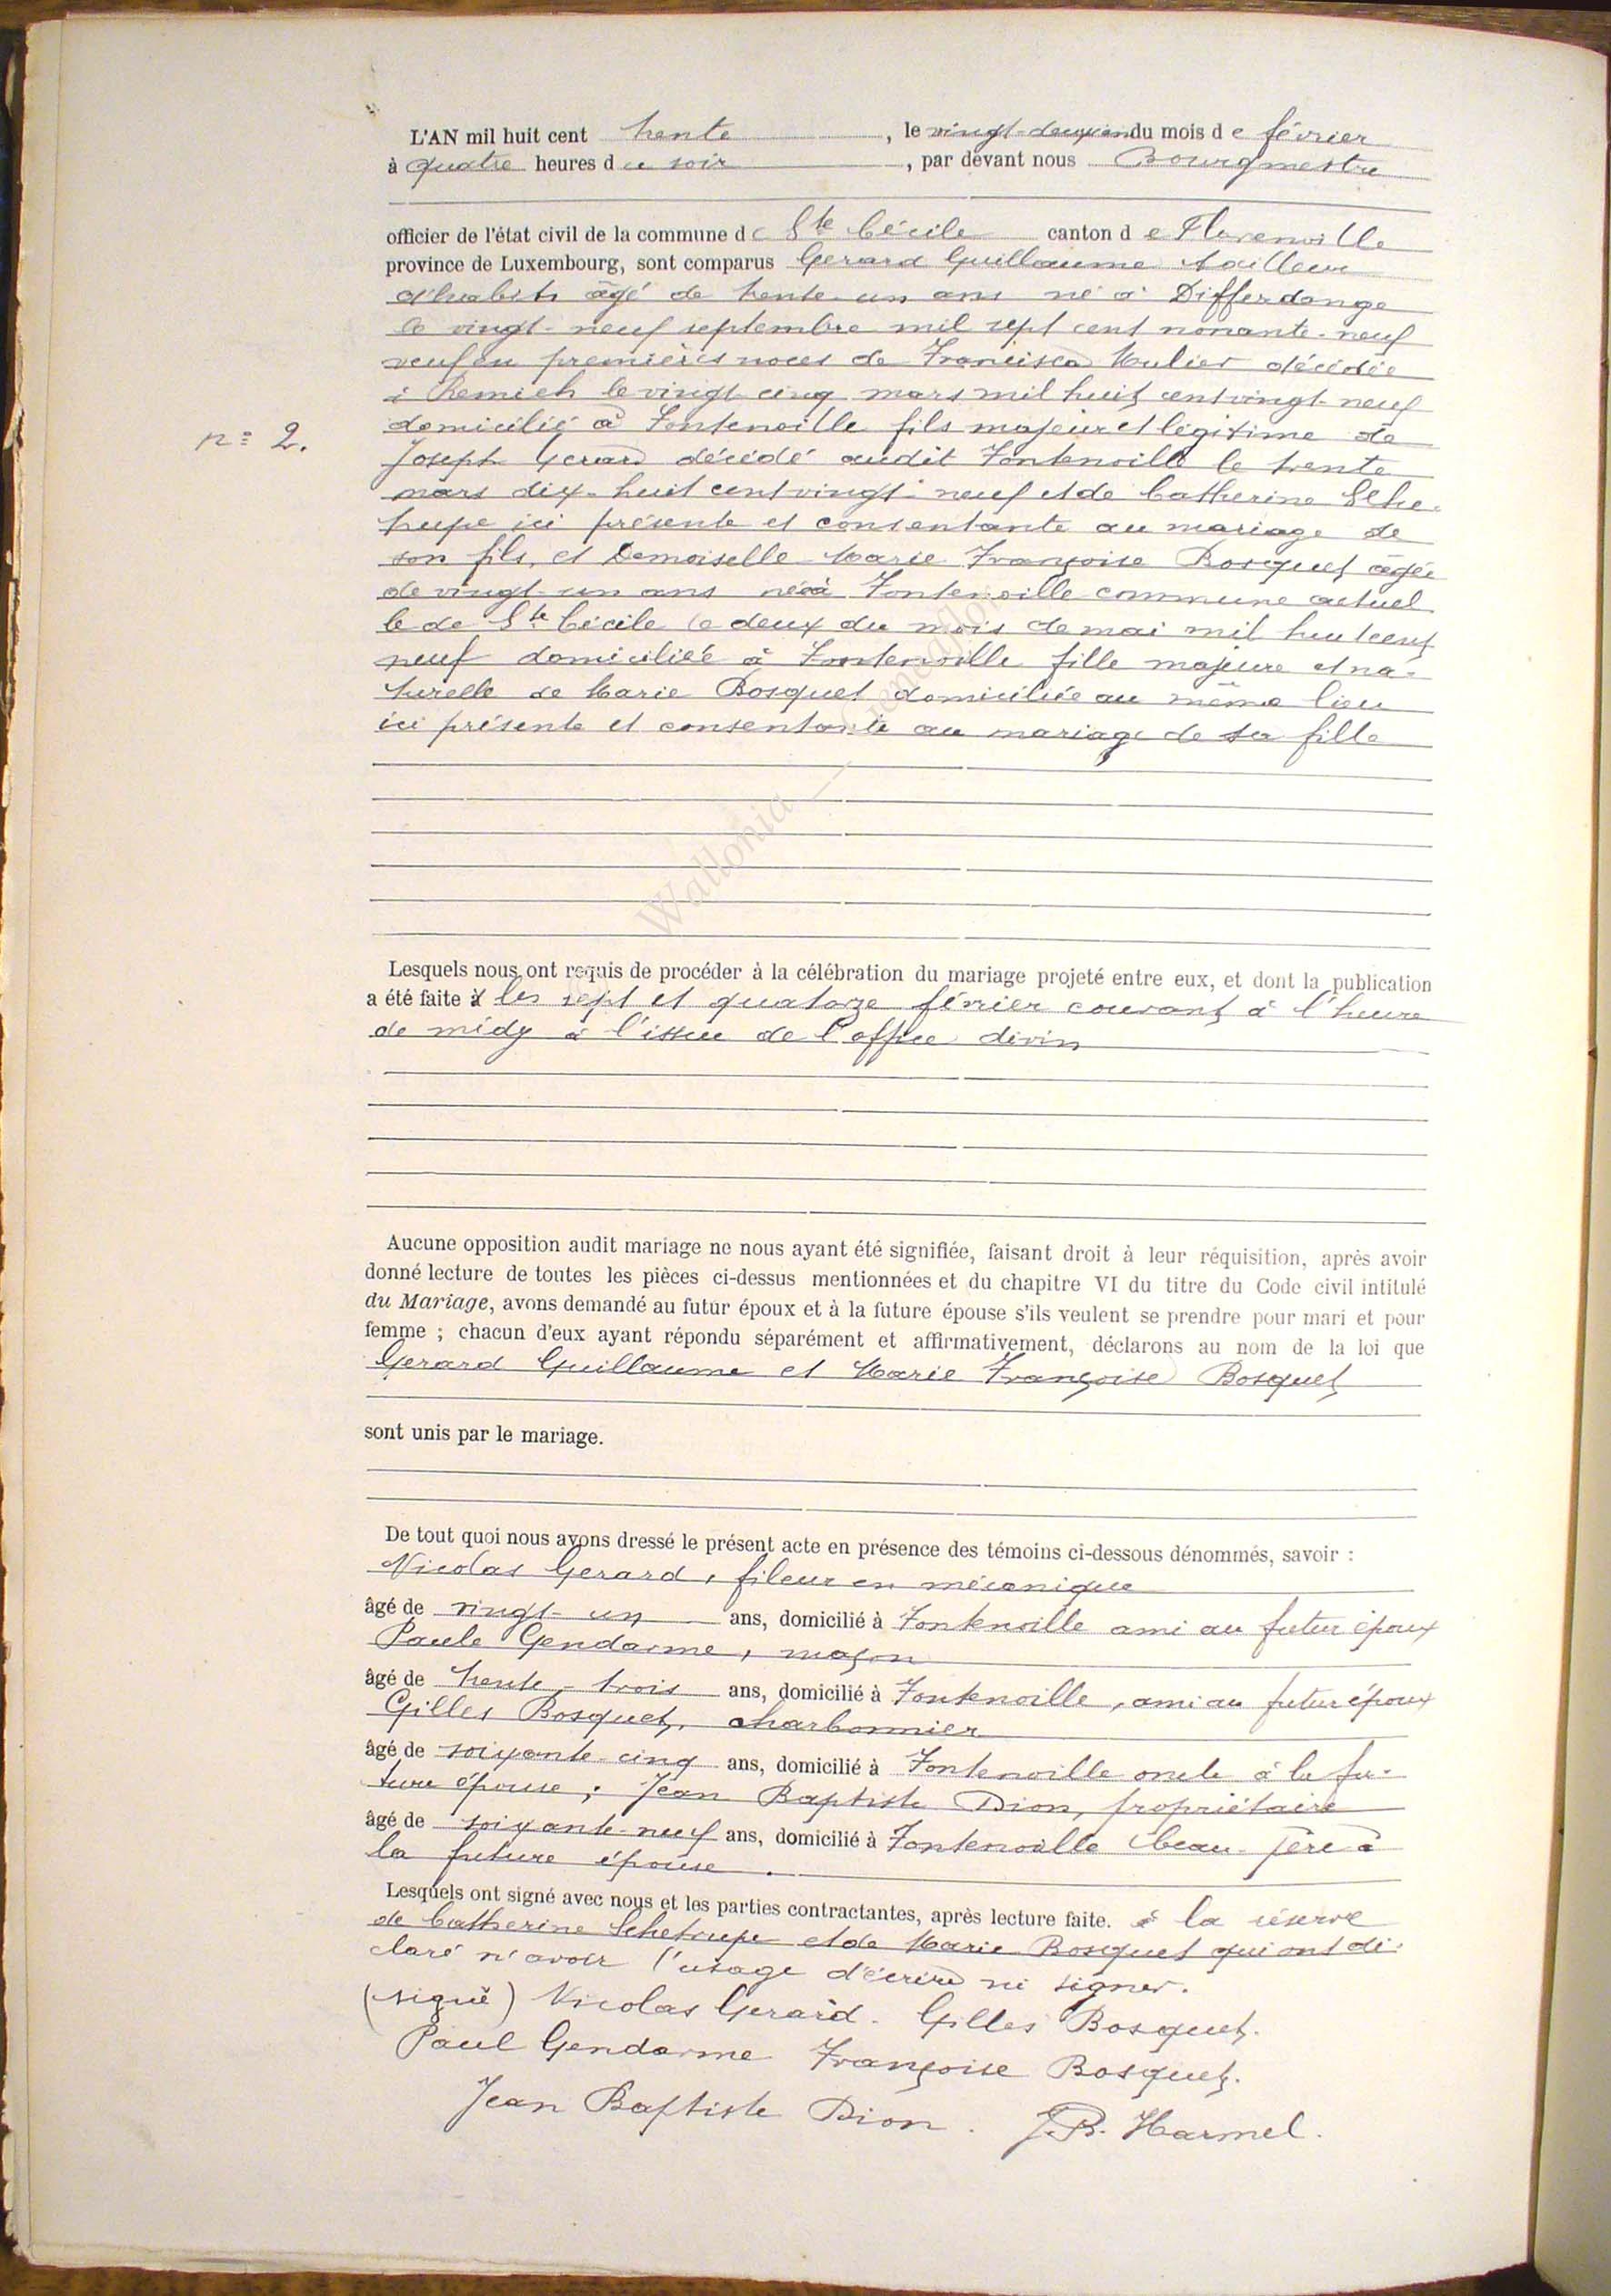 L'AN mil huit cent trente, le vingt-deuxièm du mois de février
à quatre heures du soir, par devant nous Bourgmestre
officier de l'état civil de la commune de Ste Cécile canton de Florenville
province de Luxembourg, sont comparus Gerard Guillaume tailleur
d'habits âgé de trente-un ans né à Differdange
le vingt-neuf septembre mil sept cent nonante-neuf
veuf en premières noces de Francisca Mulier décédée
à Remich le vingt cinq mars mil huit cent vingt-neuf
n° 2.
domicilié à Fontenoille fils majeur et légitime de
Joseph Gerard décédé audit Fontenoille le trente
mars dix-huit cent vingt-neuf et de Catherine Sche-
trupe ici présente et consentante au mariage de
son fils, et Demoiselle Marie Françoise Bosquet âgée
de vingt-un ans née à Fontenoille commune actuel
le de Ste Cécile le deux du mois de mai mil huit cent
neuf domiciliée à Fontenoille fille majeure et na-
turelle de Marie Bosquet domiciliée au même lieu
ici présente et consentante au mariage de sa fille
Wallonia
Lesquels nous ont requis de procéder à la célébration du mariage projeté entre eux, et dont la publication
a été faite à les sept et quatorze février courant à l'heure
de midy à l'issue de l'office divin
Aucune opposition audit mariage ne nous ayant été signifiée, faisant droit à leur réquisition, après avoir
donné lecture de toutes les pièces ci-dessus mentionnées et du chapitre VI du titre du Code civil intitulé
du Mariage, avons demandé au futur époux et à la future épouse s'ils veulent se prendre pour mari et pour
femme ; chacun d'eux ayant répondu séparément et affirmativement, déclarons au nom de la loi que
Gerard Guillaume et Marie Françoise Bosquet
sont unis par le mariage.
De tout quoi nous avons dressé le présent acte en présence des témoins ci-dessous dénommés, savoir :
Nicolas Gerard, fileur en mécanique
âgé de vingt-un ans, domicilié à Fontenoille ami au futur époux
Paule Gendarme, maçon
âgé de trente-trois ans, domicilié à Fontenoille, ami au futur époux
Gilles Bosquet, charbonnier
âgé de soixante-cinq ans, domicilié à Fontenoille oncle à la fu-
ture épouse ; Jean Baptiste Dion, propriétaire
âgé de soixante-neuf ans, domicilié à Fontenoille beau-père à
la future épouse.
Lesquels ont signé avec nous et les parties contractantes, après lecture faite. à la réserve
de Catherine Schetrupe et de Marie Bosquet qui ont dé-
claré n'avoir l'usage d'écrire ni signer.
(signé) Nicolas Gerard. Gilles Bosquet.
Paul Gendarme Françoise Bosquet.
Jean Baptiste Dion. J.B. Harmel.